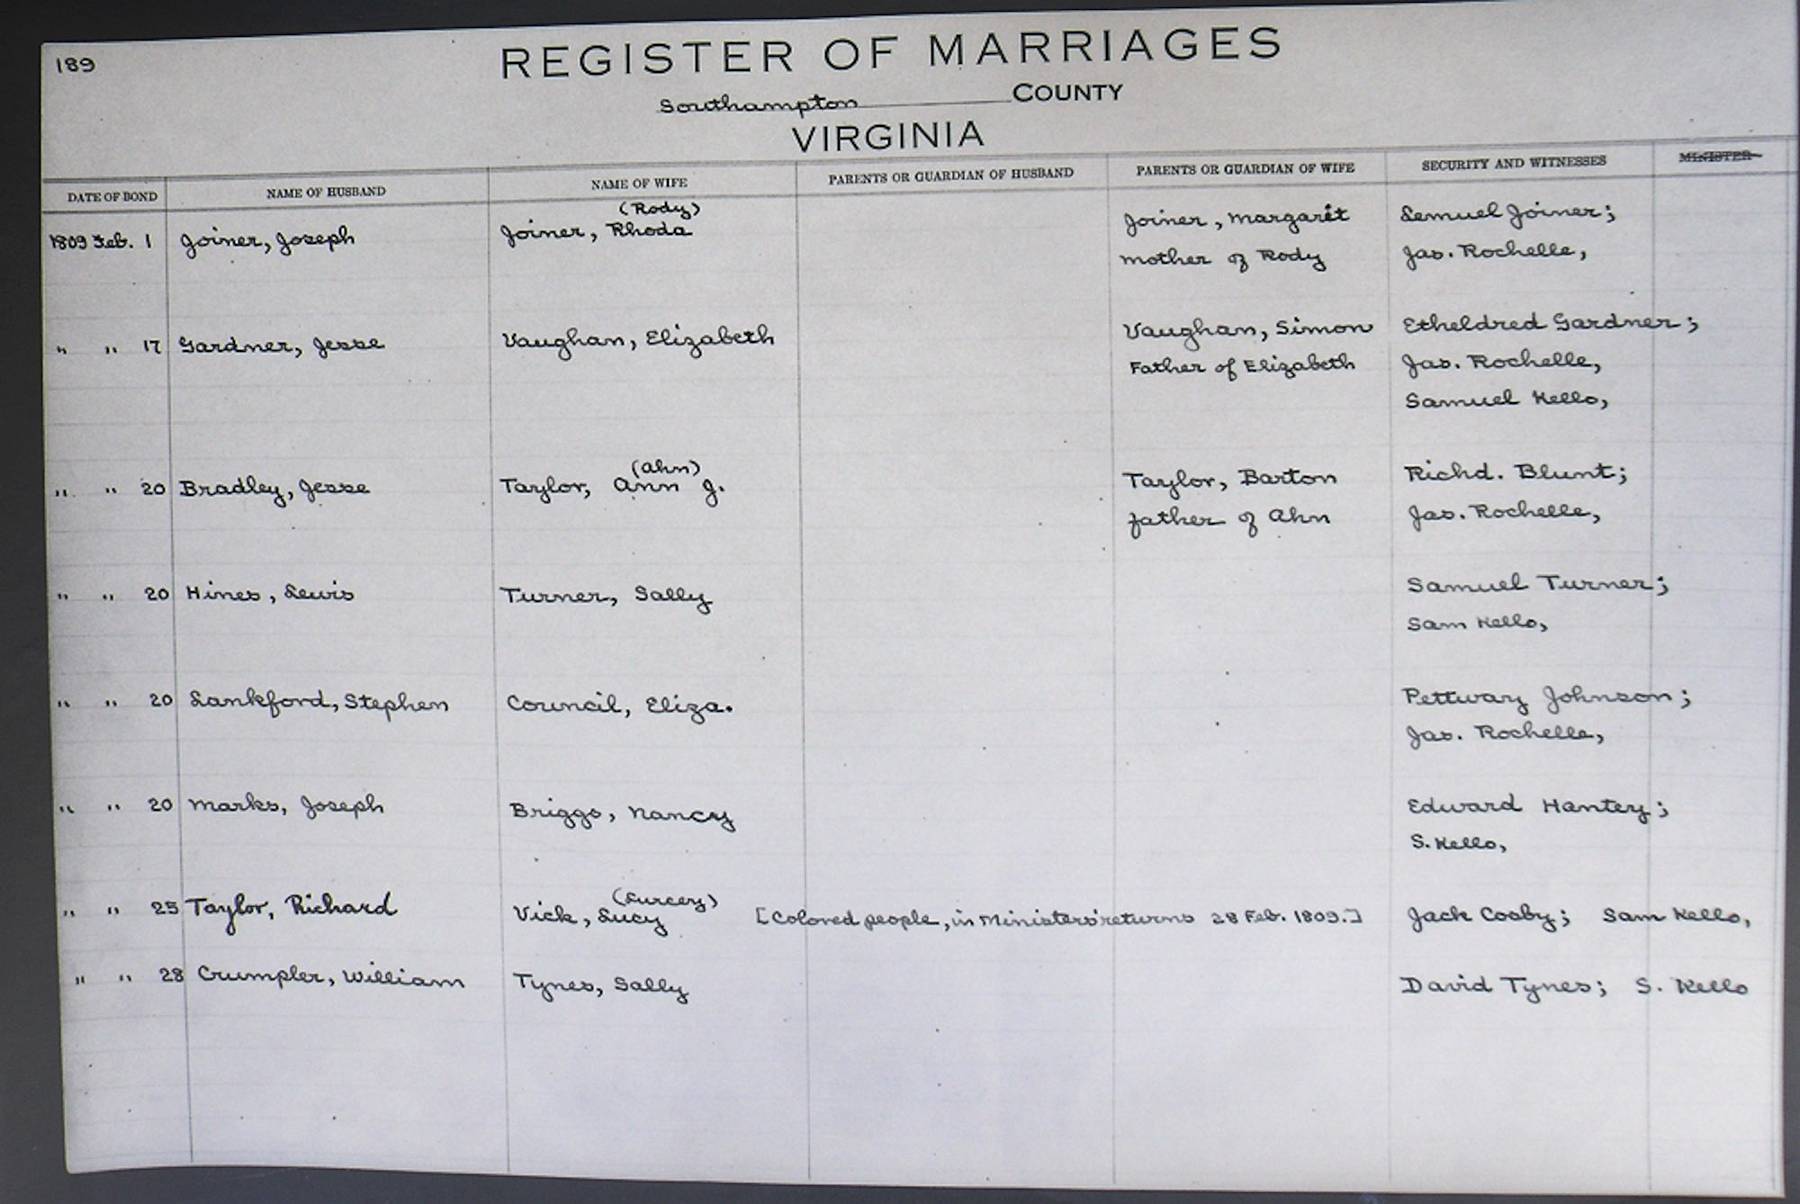 189
REGISTER OF MARRIAGES
Southampton COUNTY
VIRGINIA
DATE OF BOND NAME OF HUSBAND NAME OF WIFE PARENTS OR GUARDIAN OF HUSBAND PARENTS OR GUARDIAN OF WIFE SECURITY AND WITNESSES MINISTER
(Rody)
1809 Feb. 1 Joiner, Joseph Joiner, Rhoda Joiner, Margaret Lemuel Joiner;
mother of Rody Jas. Rochelle,
" " 17 Gardner, Jesse Vaughan, Elizabeth Vaughan, Simon Etheldred Gardner;
Father of Elizabeth Jas. Rochelle,
Samuel Kello,
(Ahn)
" " 20 Bradley, Jesse Taylor, Ann J. Taylor, Barton Richd. Blunt;
father of Ahn Jas. Rochelle,
" " 20 Hines, Lewis Turner, Sally Samuel Turner;
Sam Kello,
" " 20 Lankford, Stephen Council, Eliza. Pettway Johnson;
Jas. Rochelle,
" " 20 Marks, Joseph Briggs, Nancy Edward Hantey;
S. Kello,
(Lurcey)
" " 25 Taylor, Richard Vick, Lucy [Colored people, in Ministers' returns 28 Feb. 1809.] Jack Cosby; Sam Kello,
" " 28 Crumpler, William Tynes, Sally David Tynes; S. Kello